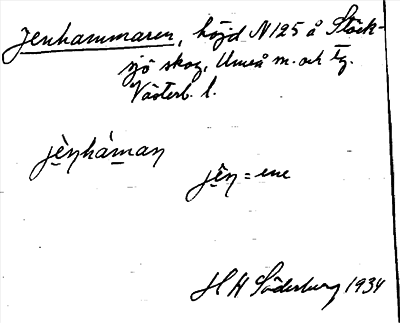 Jenhammaren, höjd N 125 å Stöck-
sjö skog, Umeå m. och tg.
Västerb. l.
jènháman
jên = ene
H H Söderburg 1934